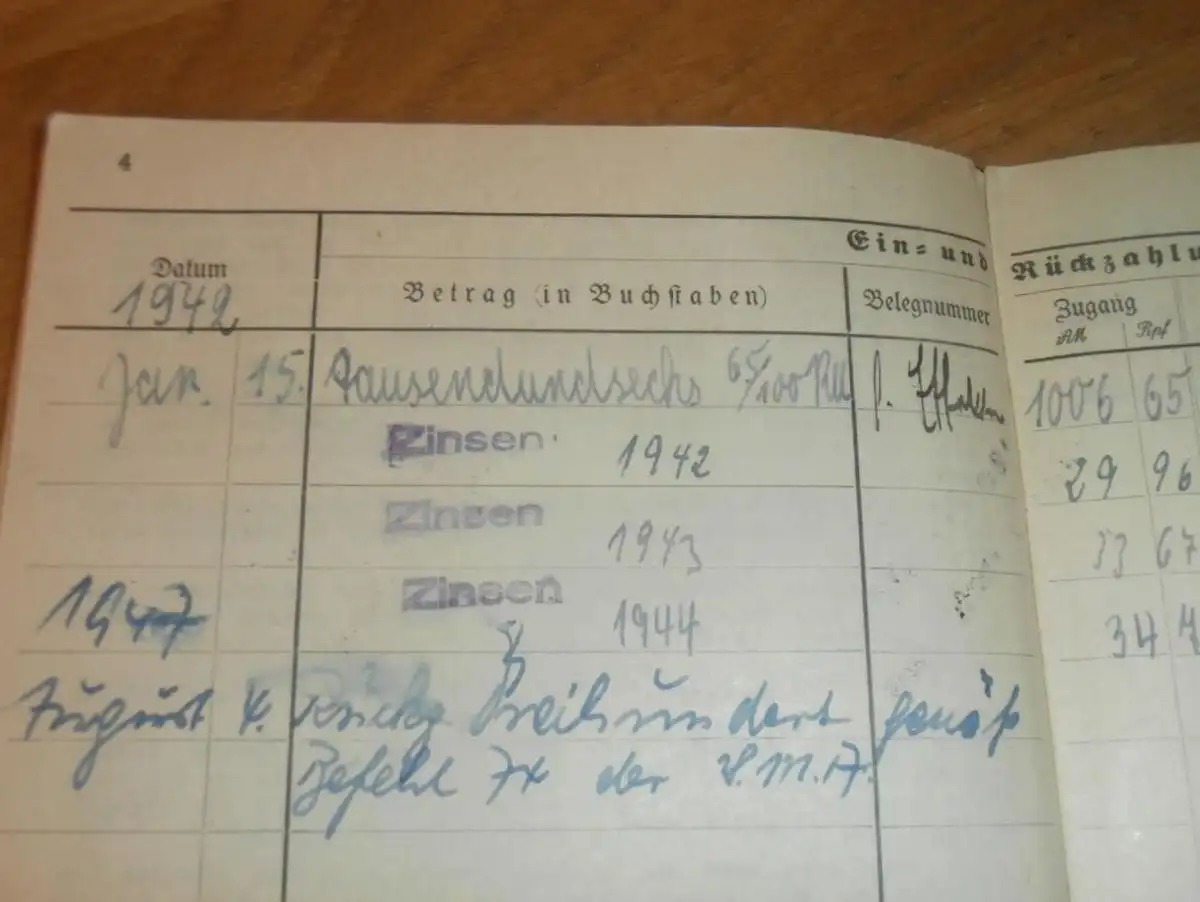 4
Ein= und Rückzahlu
Datum Betrag (in Buchstaben) Belegnummer Zugang
1942 RM Rpf
Jan. 15. tausendundsechs 65/100 RM 1006 65
Zinsen 1942 29 96
Zinsen 1943 33 67
Zinsen 1944 34
1947
August 4. Rückz. Dreihundert gemäß
Befehl 74 der S.M.A.